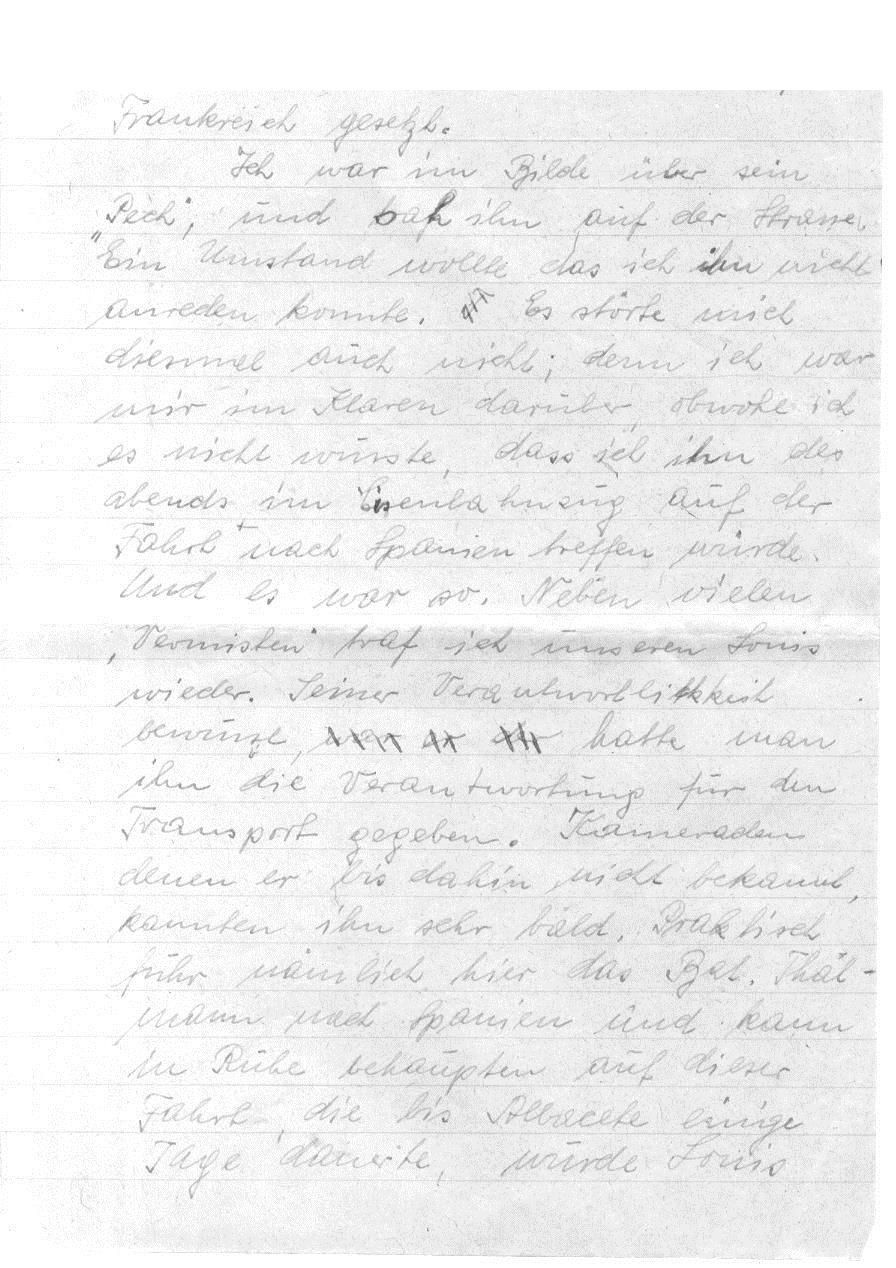 Frankreich gesetzt.
Ich war im Bilde über sein
„Pech“, und sah ihn auf der Strasse.
Ein Umstand wollte das ich ihn nicht
anreden konnte. Es störte mich
diesmal auch nicht; denn ich war
mir im Klaren darüber, obwohl ich
es nicht wusste, dass ich ihn des
abends im Eisenbahnzug auf der
Fahrt nach Spanien treffen würde.
Und es war so. Neben vielen
„Vermisten“ traf ich unseren Louis
wieder. Seiner Verantwortlichkeit
hatte man
ihn die Verantwortung für den
Transport gegeben. Kameraden
denen er bis dahin nicht bekannt,
kannten ihn sehr bald. Praktisch
fuhr nämlich hier das Bat. Thäl-
mann nach Spanien und kann
in Ruhe behaupten auf dieser
Fahrt, die bis Albacete einige
Tage dauerte, wurde Louis